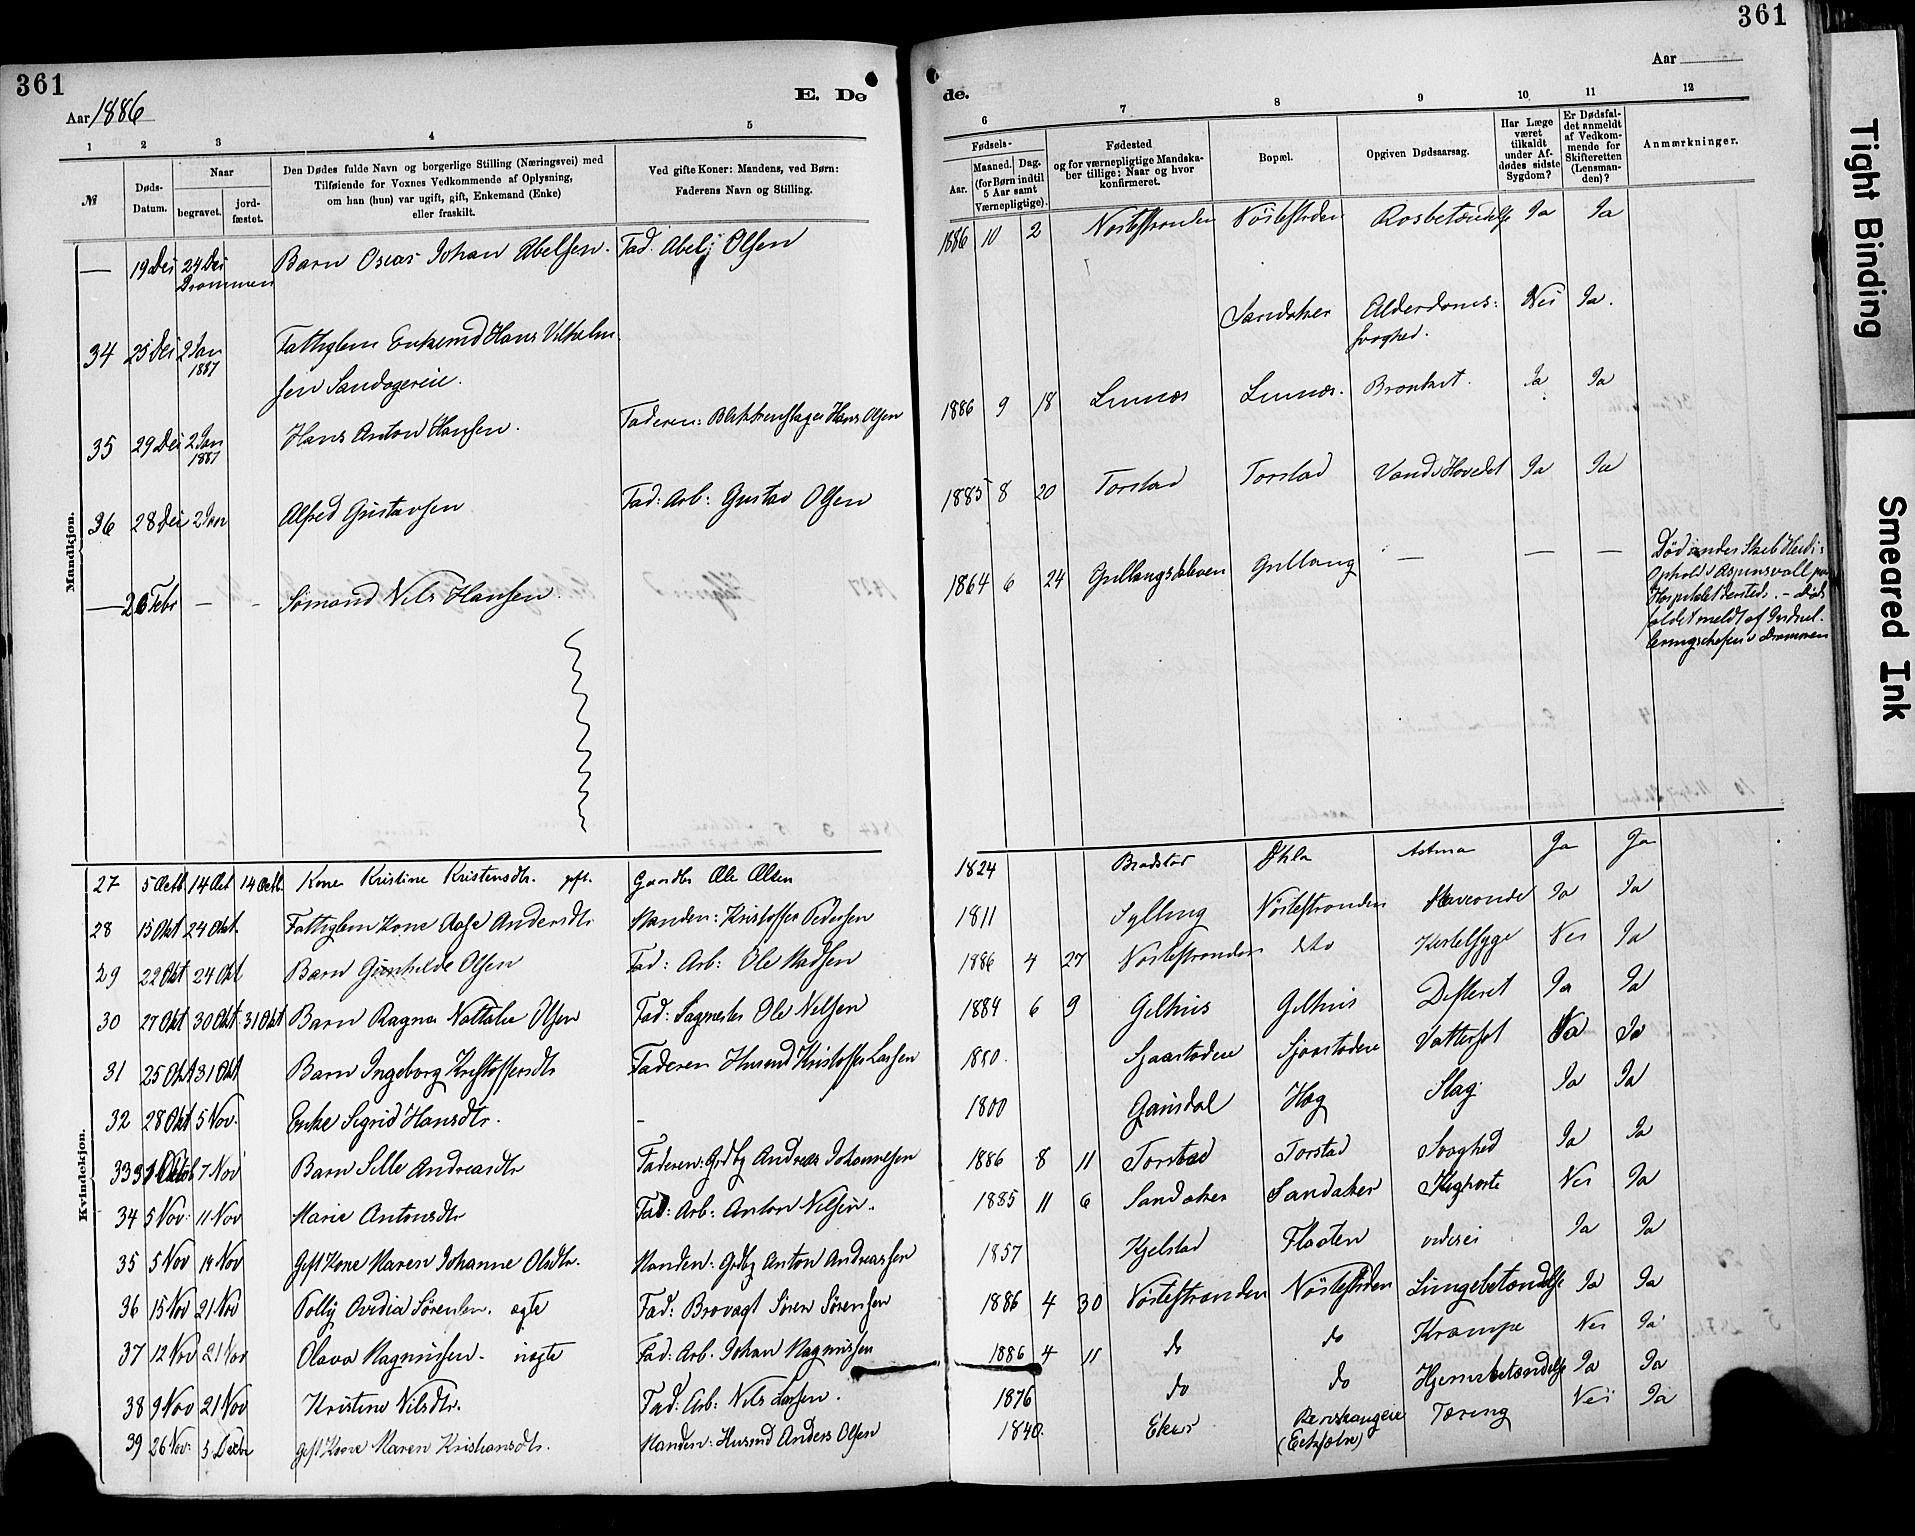 361
361
Aar 1886
E. Dø
de.
Aar
1 2 3 4 5 6 7 8 9 10 11 12
№
Døds-
Datum.
Naar
begravet.
jord-
fæstet.
Den Dødes fulde Navn og borgerlige Stilling (Næringsvei) med
Tilføiende for Voxnes Vedkommende af Oplysning,
om han (hun) var ugift, gift, Enkemand (Enke)
eller fraskilt.
Ved gifte Koner: Mandens, ved Børn:
Faderens Navn og Stilling.
Fødsels-
Aar.
Maaned. Dag.
(for Børn indtil
5 Aar samt
Værnepligtige).
Fødested
og for værnepligtige Mandska-
ber tillige: Naar og hvor
konfirmeret.
Bopæl.
Opgiven Dødsaarsag.
Har Læge
været
tilkaldt
under Af-
dødes sidste
Sygdom?
Er Dødsfal-
det anmeldt
af Vedkom-
mende for
Skifteretten
(Lensman-
den)?
Anmærkninger.
Mandkjøn.
— 19 Dec 24 Dec Barn Oscar Johan Abelsen. Fad. Abel Olsen 1886 10 2 Nøstestranden Nöstestrden Ja Ja
Drammen
34 25 Dec 2 Jan Fattiglem Enkemd Hans Vilhelm Sandaker Alderdoms- Nei Ja.
1887 sen Sandagereie. svaghed.
35 29 Dec 2 Jan Hans Anton Hansen. Faderen: Hans Olsen 1886 9 18 Linnæs Linnæs. Bronkit. Ja Ja
1887
36 28 Dec 2 Jan Alfred Gustavsen Fad: Arb: Gustav Olsen 1885 8 20 Torstad Torstad Vand i Hovedet Ja Ja
— 26 Febr — - Sömand Nils Hansen. 1864 6 24 Gullaug — — — Død under Skib
Ophold i Aspinwall paa
Hospitalet dersteds. - Døds
faldet meldt af Indrul-
leringschefen i Drammen
Kvindekjøn.
27 5 Octb 14 Oct 14 Octb. Kone Kristine Kristensdtr. gift. Gaardbr Ole Olsen 1824 Bradstad Astma Ja Ja
28 15 Okt 24 Okt. Fattiglem Kone Aase Andersdtr Manden: Kristoffer Pedersen 1811 Sylling Nöstestranden Ja Ja
29 22 Okt 24 Okt Barn Gunhilde Olsen Fad: Arb: Ole Madsen 1886 4 27 Nöstestranden dto Kertelsyge Nei Ja
30 27 Okt 30 Okt. 31 Okt Barn Ragna Nattalie Olsen Fad: Sagmester Ole Nilsen 1884 6 9 Gilhus Gilhus Difterit Ja Ja
31 25 Okt 31 Okt Barn Ingeborg Kristoffersdtr Faderen Husmd Kristoffer Larsen 1880. Sjaastadeie Sjaastadeie Vattersot Ja Ja
32 28 Okt 5 Nov. Enke Sigrid Hansdtr. - 1800 Gausdal Høg Slag Ja Ja
33 31 Oktob 7 Nov Barn Sille Andreasdtr Faderen: Grdbg Andreas Johannesen 1886 8 11 Torstad Torstad Svaghed Ja Ja
34 5 Nov. 11 Nov Marie Antonsdtr Fad: Arb: Anton Nilsen. 1885 11 6 Sandaker Sandaker Kighoste Nei Ja
35 5 Nov 14 Nov Gift Kone Maren Johanne Olsdtr. Manden: Grdbg Anton Andreassen 1857 Kjelstad Flaaten Ja Ja
36 15 Nov 21 Nov Polly Ovidia Sørensen. ægte Fad: Brovagt Søren Sørensen 1886 4 30 Nöstestranden Nöstestrden Lungebetændelse Ja Ja
37 12 Nov 21 Nov Olava Magnussen. uægte Fad: Arb. Johan Magnussen 1886 4 11 do do Krampe Nei Ja
38 9 Nov 21 Nov Kristine Nilsdtr. Fad: Arb: Nils Larsen. 1876 do do Hjernebetændelse Ja Ja
39 26 Nov: 5 Decbr Gift Kone Maren Kristiansdtr. Manden: Husmd Anders Olsen 1840. Eker Tæring Nei Ja
Tight Binding
Smeared Ink